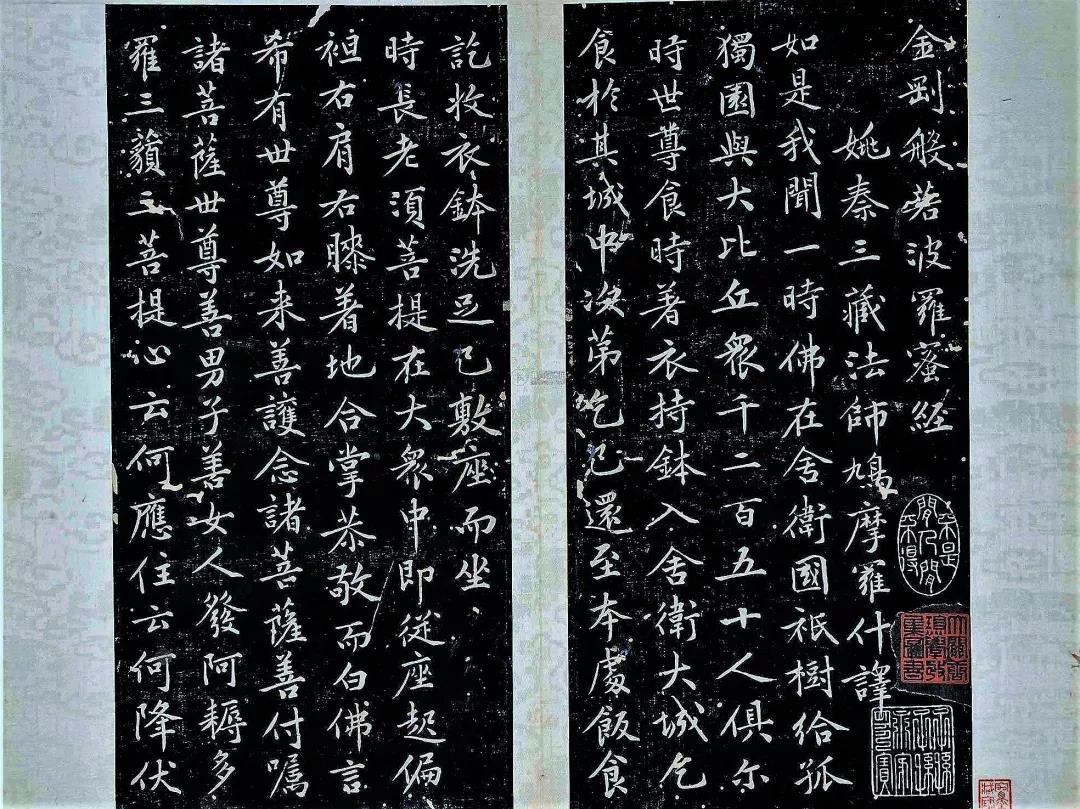 金剛般若波羅蜜經
姚秦三藏法師鳩摩羅什譯
如是我聞一時佛在舍衛國祇樹給孤
獨園與大比丘衆千二百五十人俱尔
時世尊食時著衣持鉢入舍衛大城乞
食於其城中次第乞已還至本處飯食
訖收衣鉢洗足已敷座而坐
時長老須菩提在大衆中即從座起偏
袒右肩右膝着地合掌恭敬而白佛言
希有世尊如来善護念諸菩薩善付嘱
諸菩薩世尊善男子善女人發阿耨多
羅三藐三菩提心云何應住云何降伏